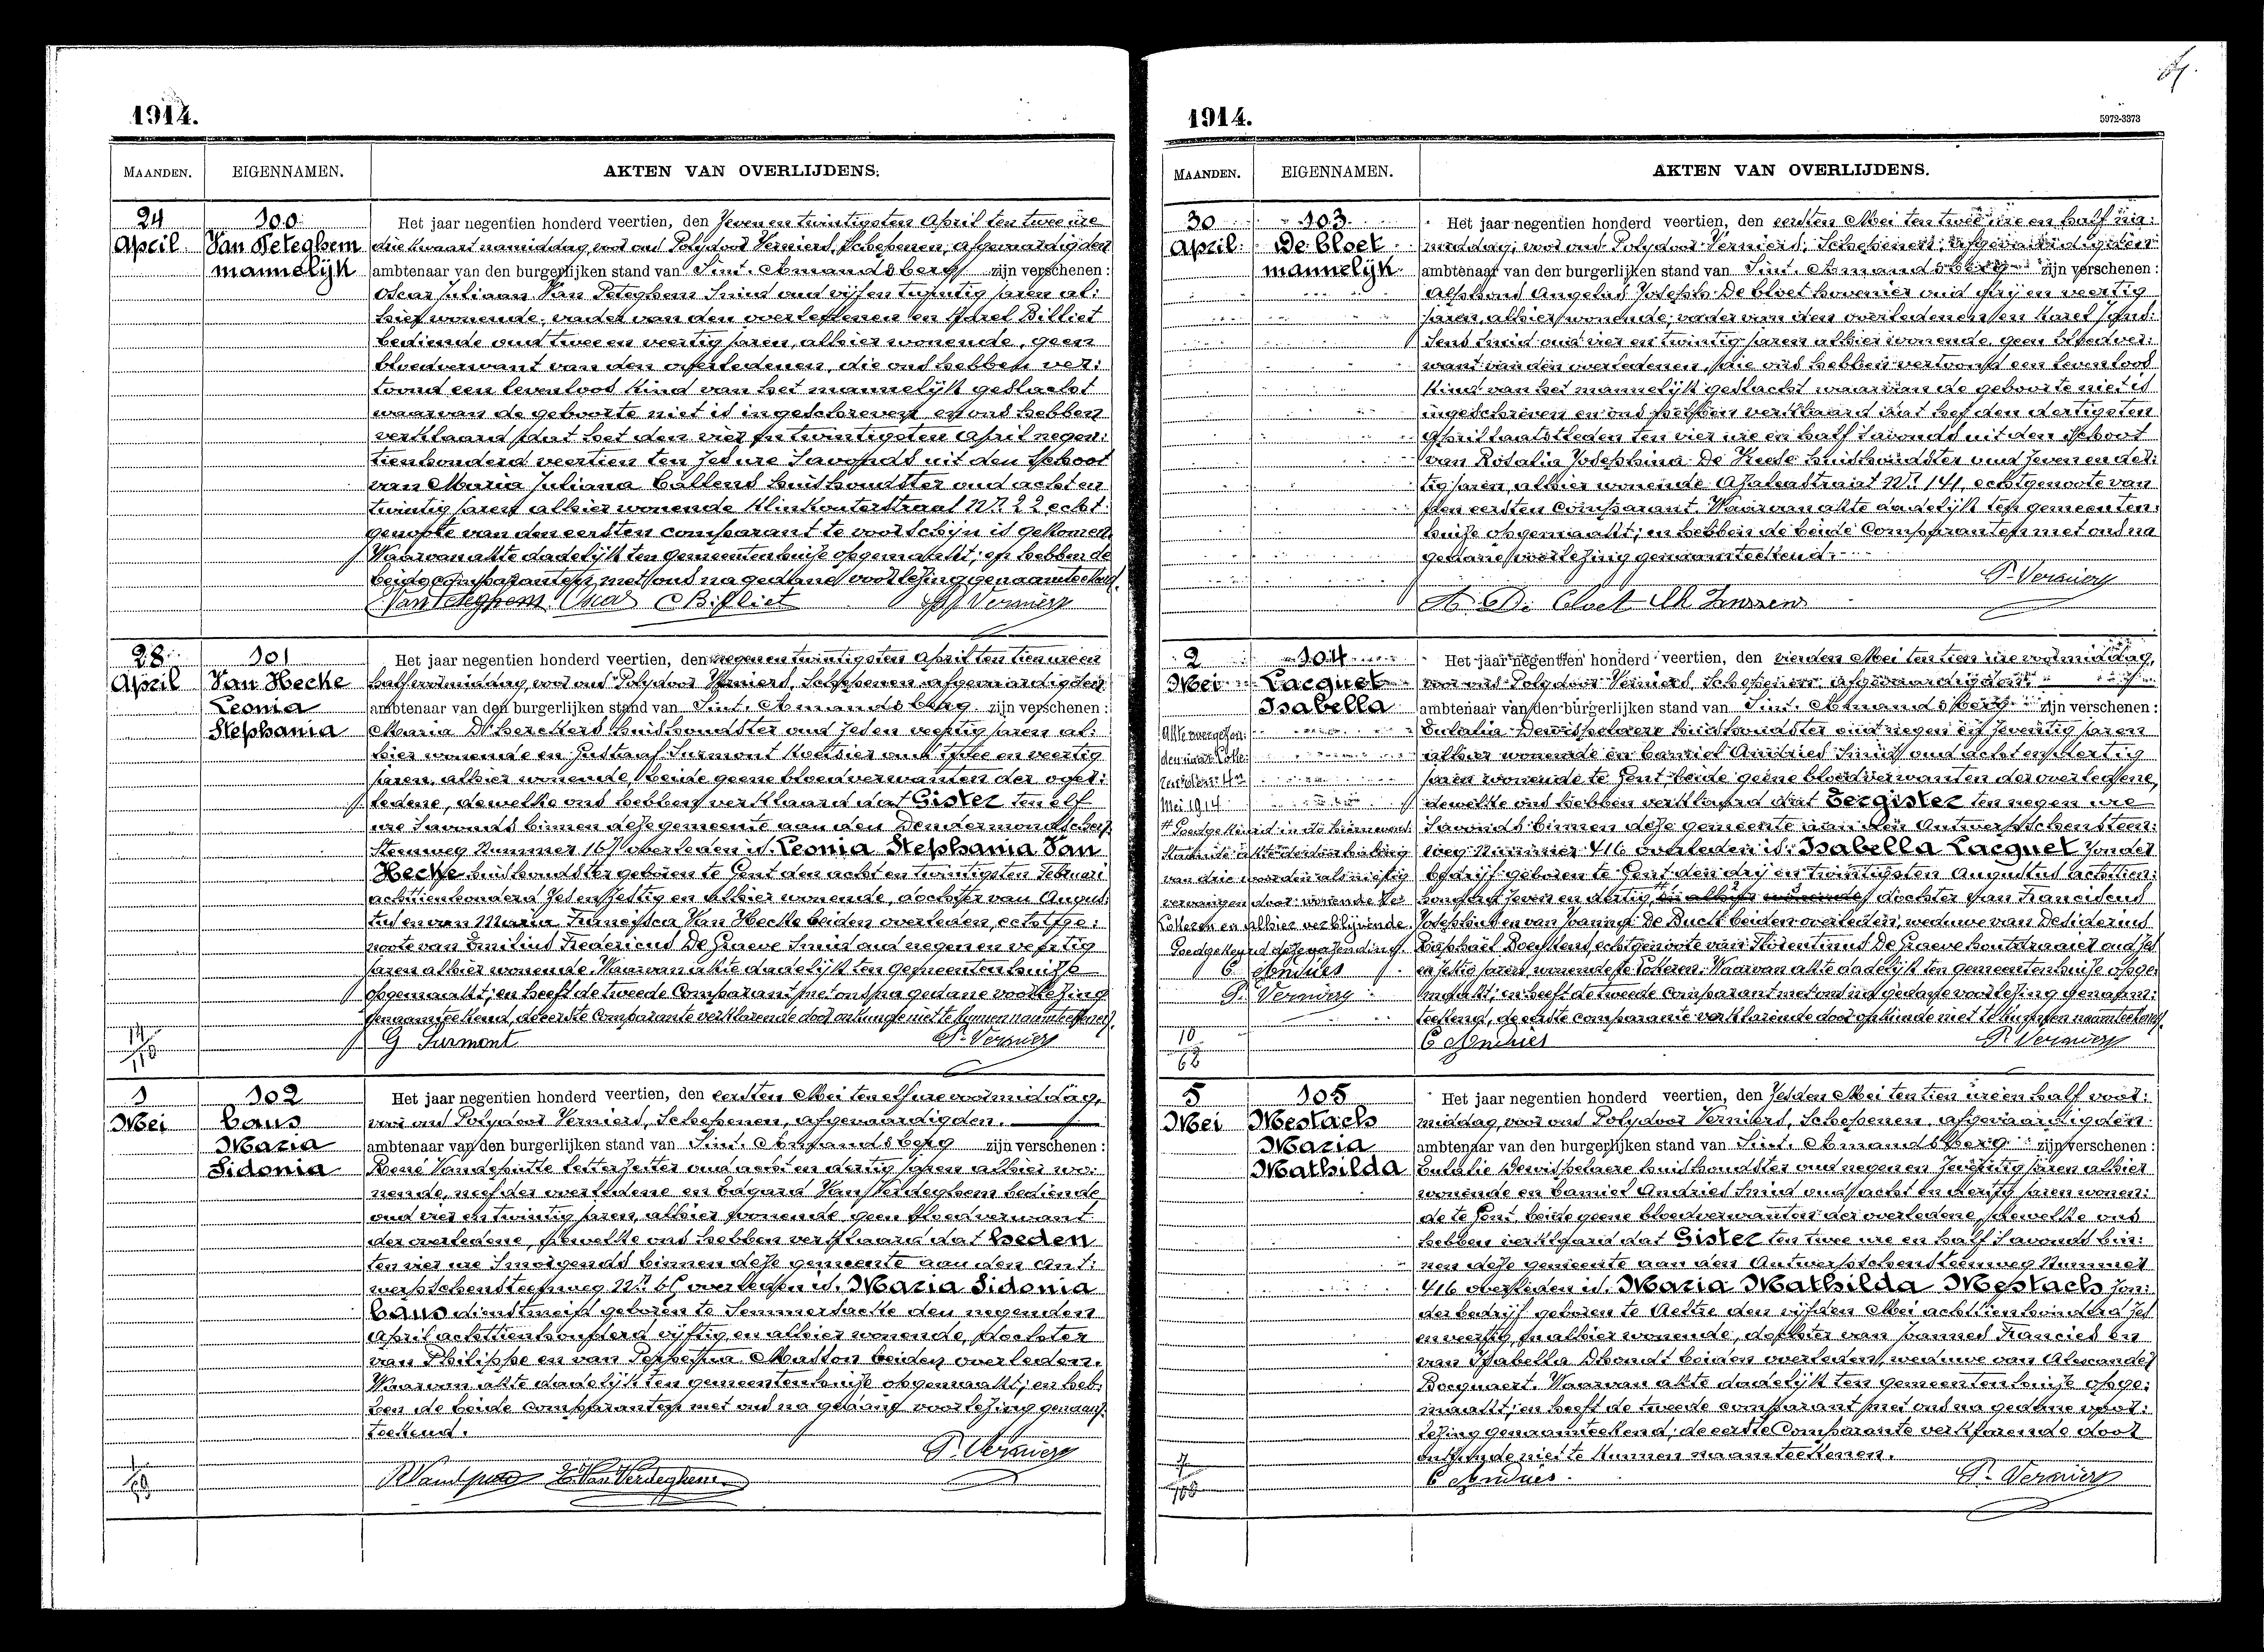 1914.
MAANDEN.
EIGENNAMEN.
AKTEN VAN OVERLIJDENS.
24
April
100
Van Peteghem
mannelijk
Het jaar negentien honderd veertien, den zeven en twintigsten April ten twee ure
drie kwaart namiddag, voor ons Polydoor Verniers, Schepenen, afgevaardigden
ambtenaar van den burgerlijken stand van Sint. Amandsberg zijn verschenen :
Oscar Juliaan Van Peteghem Smid oud vijf en twintig jaren al:
hier wonende, vader van den overledenen en Karel Billiet
bediende oud twee en veertig jaren, alhier wonende, geen
bloedverwant van den overledenen, die ons hebben ver:
toond een levenloos kind van het mannelijk geslacht
waarvan de geboorte niet is ingeschreven en ons hebben
verklaard dat het den vier en twintigsten April negen:
tienhonderd veertien ten zes ure 's avonds uit den schoot
van Maria Juliana Callens huishoudster oud acht en
twintig jaren alhier wonende Klinkouterstraat Nr. 22 echt
genoote van den eersten comparant te voorschijn is gekomen.
Waarvan akte dadelijk ten gemeentenhuize opgemaakt; en hebben de
beide comparanten met ons na gedane voorlezing genaamteekend.
Van Peteghem Oscar C Billiet P. Verniers
28
April
101
Van Hecke
Leonia
Stephania
Het jaar negentien honderd veertien, den negen en twintigsten April ten tien ure en
half voormiddag, voor ons Polydoor Verniers, Schepenen afgevaardigden
ambtenaar van den burgerlijken stand van Sint. Amandsberg zijn verschenen :
Maria D'hereckers huishoudster oud zes en veertig jaren al:
hier wonende en Gustaaf Surmont Koetsier oud twee en veertig
jaren, alhier wonende, beide geene bloedverwanten der over:
ledene, dewelke ons hebben verklaard dat Gister ten elf
ure 's avonds binnen deze gemeente aan den Dendermondschen
Steenweg Nummer 167 overleden is, Leonia Stephania Van
Hecke huishoudster geboren te Gent den acht en twintigsten Februari
achttienhonderd zes en zestig en alhier wonende, dochter van Augus:
tus en van Maria Francisca Van Hecke beiden overleden, echtge:
noote van Emilius Fredericus De Graeve Smid oud negen en veertig
jaren alhier wonende. Waarvan akte dadelijk ten gemeentenhuize
opgemaakt; en heeft de tweede Comparant met ons na gedane voorlezing
genaamteekend, de eerste Comparante verklarende door onkunde niet te kunnen naamteekenen.
G Surmont P. Verniers
1
Mei
102
Caus
Maria
Sidonia
Het jaar negentien honderd veertien, den eersten Mei ten elf ure voormiddag,
voor ons Polydoor Verniers, Schepenen, afgevaardigden.
ambtenaar van den burgerlijken stand van Sint. Amandsberg zijn verschenen :
René Vandeputte letterzetter oud acht en dertig jaren alhier wo:
nende, neef der overledene en Edgard Van Verdeghem bediende
oud vier en twintig jaren, alhier wonende geen bloedverwant
der overledene, dewelke ons hebben verklaard dat heden
ten vier ure 's morgends binnen deze gemeente aan den Ant:
werpschensteenweg Nr. overleden is, Maria Sidonia
Caus dienstmeid geboren te Semmersaeke den negenden
April achttienhonderd vijftig, en alhier wonende, dochter
van Philippe en van Masson beiden overleden.
Waarvan akte dadelijk ten gemeentenhuize opgemaakt; en heb:
ben de beide comparanten met ons na gedane voorlezing genaam:
teekend.
P. Verniers
E. Van Verdeghem
1914.
5972-3373
MAANDEN.
EIGENNAMEN.
AKTEN VAN OVERLIJDENS.
30
April
103
De Cloet
mannelijk
Het jaar negentien honderd veertien, den eersten Mei ten twee ure en half na:
middag, voor ons Polydoor Verniers, Schepenen, afgevaardigden
ambtenaar van den burgerlijken stand van Sint. Amandsberg zijn verschenen :
Alphons Angelus Joseph De Cloet hovenier oud drij en veertig
jaren, alhier wonende, vader van den overledenen en Karel Jans:
sens Smid oud vier en twintig jaren alhier wonende, geen bloedver:
want van den overledenen, die ons hebben vertoond een levenloos
kind van het mannelijk geslacht waarvan de geboorte niet is
ingeschreven en ons hebben verklaard dat het den dertigsten
April laatstleden ten vier ure en half 's avonds uit den schoot
van Rosalia Josephina De huishoudster oud zeven en der:
tig jaren, alhier wonende Nr. 141, echtgenoote van
den eersten Comparant. Waarvan akte dadelijk ten gemeenten:
huize opgemaakt; en hebben de beide Comparanten met ons na
gedane voorlezing genaamteekend.
P. Verniers
A. De Cloet Ch Janssens
2
Mei
104
Lacquet
Isabella
Akte overgezon:
den naar Loke:
ren den 4en
Mei 1914
Het jaar negentien honderd veertien, den vierden Mei ten tien ure voormiddag,
voor ons Polydoor Verniers, Schepenen afgevaardigden
ambtenaar van den burgerlijken stand van Sint. Amandsberg zijn verschenen :
Eulalia Dewispelaere huishoudster oud negen en zeventig jaren
alhier wonende en Camiel Andries Smid oud acht en dertig
jaren wonende te Gent, beide geene bloedverwanten der overledene,
dewelke ons hebben verklaard dat Eergister ten negen ure
's avonds binnen deze gemeente aan den Antwerpschensteen:
weg Nummer 416 overleden is, Isabella Lacquet zonder
bedrijf geboren te Gent den drij en twintigsten Augustus achttien:
honderd zeven en dertig, en alhier wonende, dochter van Franciscus
Josephus en van Joanna De Buck beiden overleden, weduwe van Desiderius
Raphaël echtgenoote van Florentinus De Graeve houtdraaier oud zes
en zestig jaren, wonende te Lokeren. Waarvan akte dadelijk ten gemeentenhuize opge:
maakt; en heeft de tweede comparant met ons na gedane voorlezing genaam:
teekend, de eerste comparante verklarende door onkunde niet te kunnen naamteekenen.
# Goedgekeurd in de bovenstaande akte de doorhaling
van drie woorden als nietig
vervangen door: wonende te
Lokeren en alhier verblijvende.
Goedgekeurd deze verzending.
C Andries
P. Verniers
C Andries P. Verniers
5
Mei
105
Mestach
Maria
Mathilda
Het jaar negentien honderd veertien, den zesden Mei ten tien ure en half voor:
middag, voor ons Polydoor Verniers, Schepenen, afgevaardigden
ambtenaar van den burgerlijken stand van Sint. Amandsberg zijn verschenen :
Eulalie Dewispelaere huishoudster oud negen en zeventig jaren alhier
wonende en Camiel Andries Smid oud acht en dertig jaren wonen:
de te Gent, beide geene bloedverwanten der overledene, dewelke ons
hebben verklaard dat Gister ten twee ure en half 's avonds bin:
nen deze gemeente aan den Antwerpschensteenweg Nummer
416 overleden is, Maria Mathilda Mestach zon:
der bedrijf geboren te Aeltre den vijfden Mei achttienhonderd zes
en veertig, en alhier wonende, dochter van Joannes Francies en
van Isabella Dhondt beiden overleden, weduwe van Alexander
Bocquaert. Waarvan akte dadelijk ten gemeentenhuize opge:
maakt; en heeft de tweede comparant met ons na gedane voor:
lezing genaamteekend; de eerste Comparante verklarende door
onkunde niet te kunnen naamteekenen.
C Andries P. Verniers